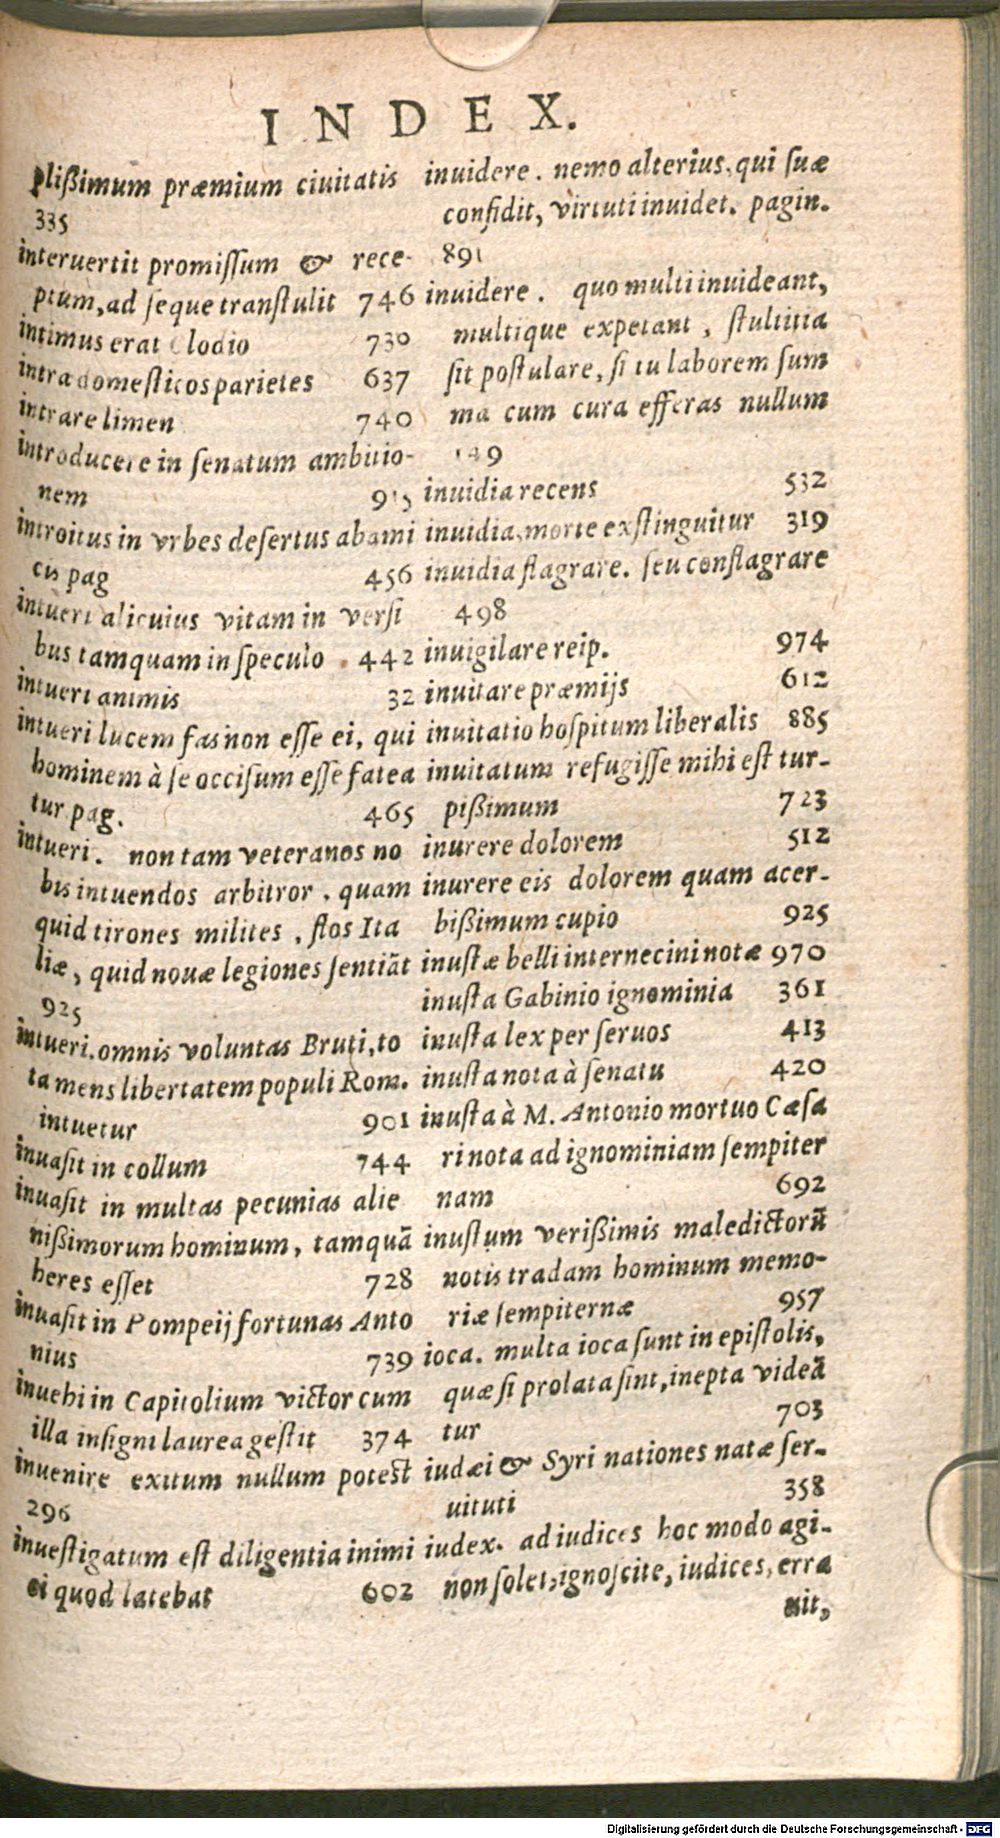 INDEX.
plißimum præmium ciuitatis
335
interuertit promissum & rece-
ptum, ad seque transtulit 746
intimus erat Clodio 730
intra domesticos parietes 637
intrare limen 740
introducere in senatum ambitio-
nem
introitus in vrbes desertus ab ami
cis pag 456
intueri alicuius vitam in versi
bus tamquam in speculo . 442
intueri animis 32
intueri lucem fas non esse ei, qui
hominem à se occisum esse fatea
tur pag. 465
intueri. non tam veteranos no
bis intuendos arbitror . quam
quid tirones milites , flos Ita
liæ, quid nouæ legiones sentiāt
925
intueri. omnis voluntas Bruti, to
ta mens libertatem populi Rom.
intuetur 901
inuasit in collum 744
inuasit in multas pecunias alie
nißimorum hominum, tamquā
heres esset 728
inuasit in Pompeij fortunas Anto
nius 739
inuehi in Capitolium victor cum
illa insigni laurea gestit 374
inuenire exitum nullum potest
296
inuestigatum est diligentia inimi
ei quod latebat 602
inuidere . nemo alterius, qui suæ
confidit, virtuti inuidet. pagin.
891
inuidere . quo multi inuideant,
multique expetant , stultitia
sit postulare, si tu laborem sum
ma cum cura efferas nullum
149
inuidia recens 532
inuidia, morte exstinguitur 319
inuidia flagrare. seu conflagrare
498
inuigilare reip. 974
inuitare præmijs 612
inuitatio hospitum liberalis 885
inuitatum refugisse mihi est tur-
pißimum 723
inurere dolorem 512
inurere eis dolorem quam acer-
bißimum cupio 925
inustæ belli internecini notæ 970
inusta Gabinio ignominia 361
inusta lex per seruos 413
inusta nota à senatu 420
inusta à M. Antonio mortuo Cæsa
ri nota ad ignominiam sempiter
nam 692
inustum verißimis maledictorū
notis tradam hominum memo-
riæ sempiternæ 957
ioca. multa ioca sunt in epistolis,
quæ si prolata sint, inepta videā
tur 703
iudæi & Syri nationes natæ ser-
uituti 358
iudex. ad iudices hoc modo agi-
non solet, ignoscite, iudices, erra
uit,
Digitalisierung gefördert durch die Deutsche Forschungsgemeinschaft - DFG